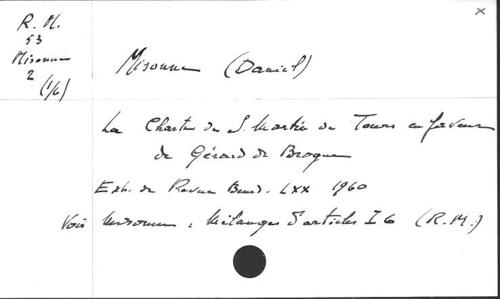 R. M.
53
Misonne
2
(1/6)
Misonne (Daniel)
La Charte de S. Martin de Tours en faveur
de Gérard de Brogne
Extr. de Revue Bénéd. LXX 1960
Voir Misonne, Mélanges d'articles I 6 (R.M.)